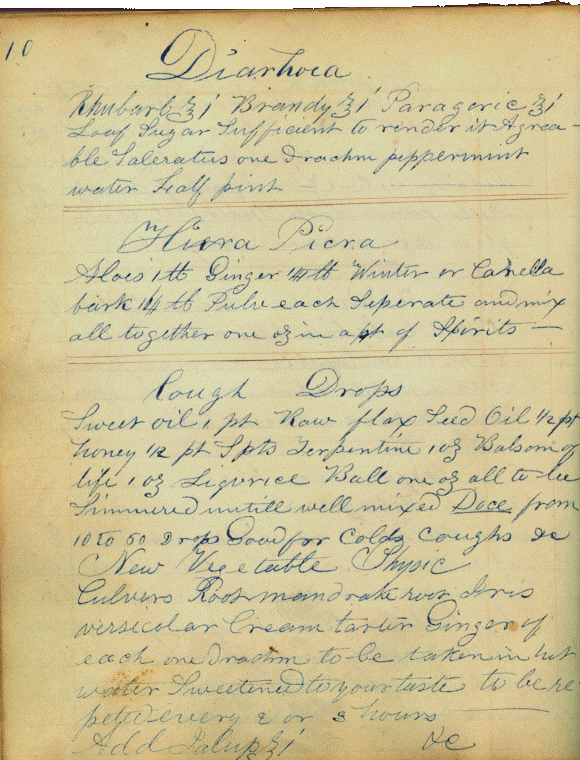 10
Diarhoea
Rhubarb ʒ i Brandy ʒ i Paragoric ʒ i
Loaf Sugar Sufficient to render it Agrea-
ble Saleratus one drachm peppermint
water half pint
Hiera Picra
Aloes 1 ℔ Ginger 1/4 ℔ Winter or Canella
bark 1/4 ℔ Pulv each Seperate and mix
all together one oz in a pt of Spirits —
Cough Drops
Sweet oil 1 pt Raw flax Seed Oil 1/2 pt
honey 1/2 pt Spts Terpentine 1 oz Balsom of
life 1 oz Liqurice Ball one oz all to be
Simmered untill well mixed Doce from
10 to 60 Drops Good for Colds Coughs &c
New Vegetable Physic
Culvers Root mandrake root Iris
versicolar Cream tarter Ginger of
each one drachm to be taken in hot
water Sweetened to your taste to be re
peted every 2 or 3 hours
Add Jalup ʒ i &c